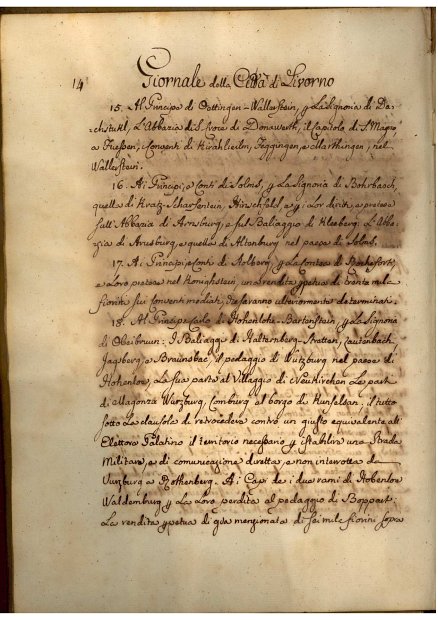 14 Giornale della Città di Livorno
15. Al Principe di Oettingen-Wallerstein, y La Signoria di Da-
chstuhl, L'Abbazia di S. Croce di Donawerth, il Capitolo di S. Magno
a Fuessen, Conventi di Kirchheim, Deggingen, e Maithingen, nel
Wallerstein.
16. Ai Principi, e Conti di Solms, y La Signoria di Rohrbach,
quelle di Kratz-Scharfenstein, Hirschfeld, e y i Lor diritti, e pretese
sull'Abbazia di Arnsburg, e sul Baliaggio di Kleeberg: L'Abba-
zia di Arnsburg, e quella di Altenburg nel paese di Solms.
17. Ai Principi, e Conti di Stolberg, y La Contea di Rochefort,
e Loro pretese nel Konighstein, una rendita ypetua di trenta mila
fiorini sui conventi mediati, che saranno ulteriormente determinati.
18. Al Principe Carlo di Hohenlohe-Bartenstein, y La Signoria
di Oberbrunn: I Baliaggi di Halternberg-Stretten, Lautenbach,
Jagsberg, e Braunsbac, il pedaggio di Wutzburg nel paese di
Hohenloe, La sua parte al Villaggio di Neukirchen Le parti
di Magonza Wurzburg, Comburg al borgo di Kunselsau, il tutto
sotto La clausola di retrocedere contro un giusto equivalente all'
Elettore Palatino il territorio necessario y istabilire una Strada
Militare, e di comunicazione diretta, e non interrotta da
Vurzburg a Rothenberg. Ai Capi de i due rami di Hohenloe
Waldemburg y La Loro perdita al pedaggio di Boppart:
La rendita ypetua di gia menzionata di sei mile fiorini sopra